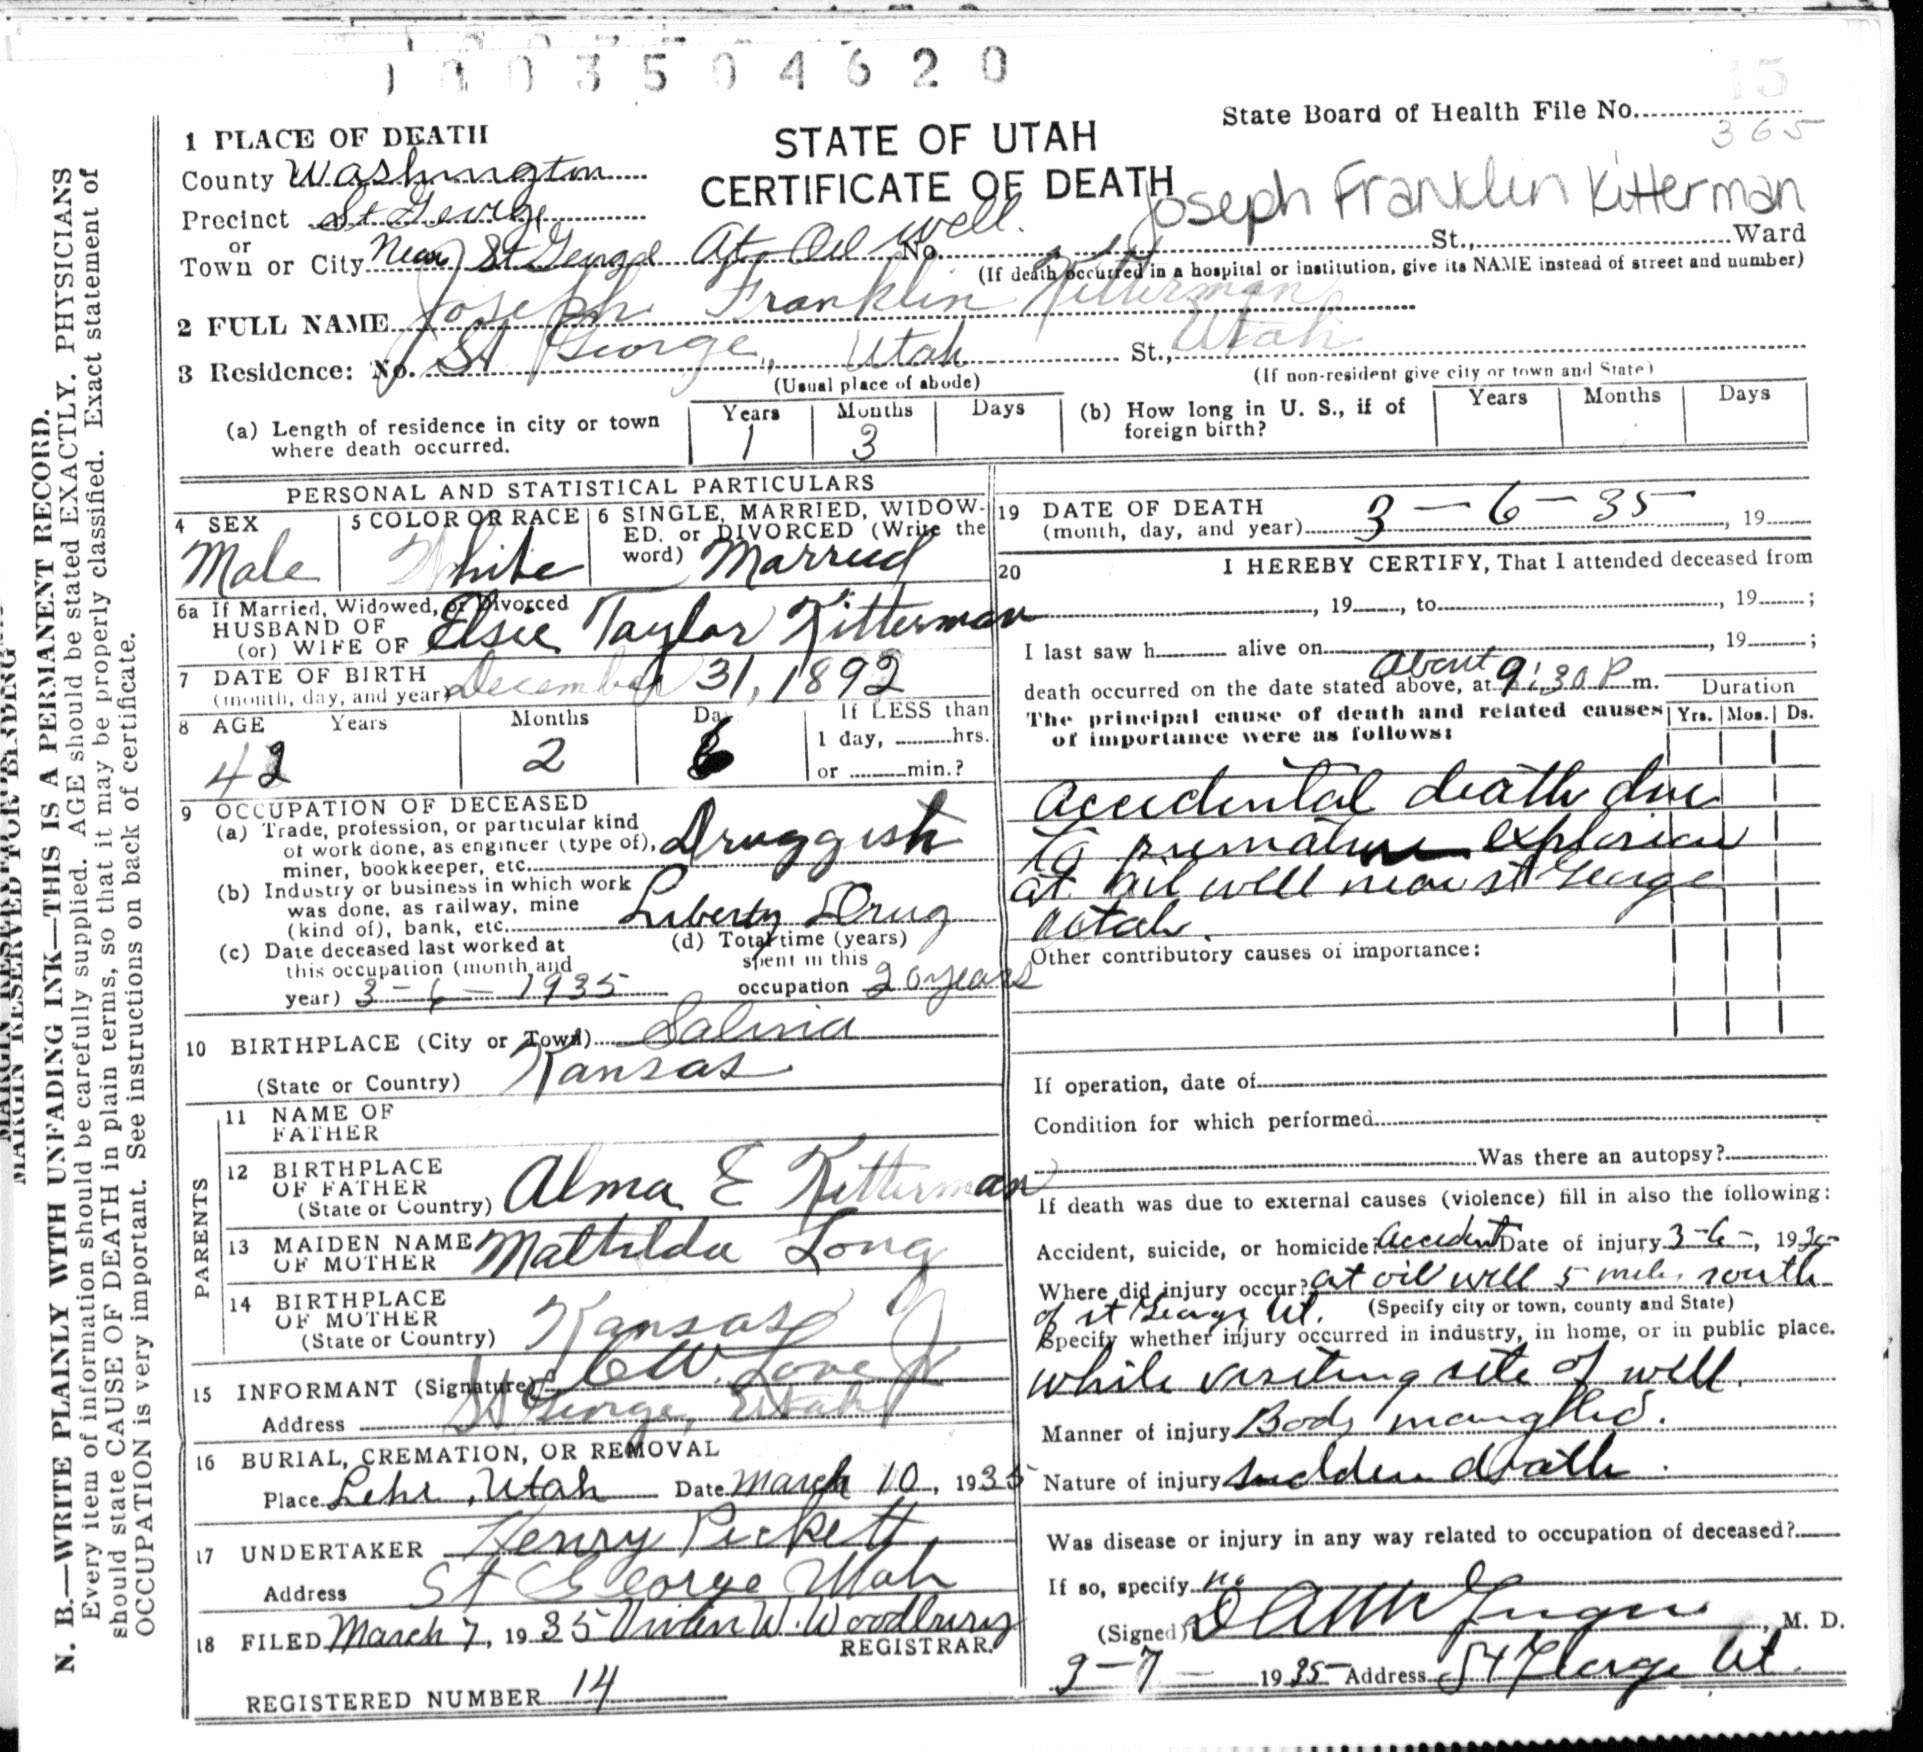 1003504620
15
State Board of Health File No.
365
1 PLACE OF DEATH
STATE OF UTAH
CERTIFICATE OF DEATH
Joseph Franklin Kitterman
County Washington
Precinct St George
or
Town or City Near St George At Oil well. No. St., Ward
(If death occurred in a hospital or institution, give its NAME instead of street and number)
2 FULL NAME Joseph Franklin Kitterman
3 Residence: No. St George, Utah St., Utah
(Usual place of abode)
(If non-resident give city or town and State)
(a) Length of residence in city or town where death occurred. Years 1 Months 3 Days
(b) How long in U. S., if of foreign birth? Years Months Days
PERSONAL AND STATISTICAL PARTICULARS
4 SEX
Male
5 COLOR OR RACE
White
6 SINGLE, MARRIED, WIDOW-
ED. or DIVORCED (Write the
word) Married
6a If Married, Widowed, or Divorced
HUSBAND OF
(or) WIFE OF Elsie Taylor Kitterman
7 DATE OF BIRTH
(month, day, and year) December 31, 1892
8 AGE Years Months Da If LESS than
42 2 6 1 day, hrs.
or min.?
9 OCCUPATION OF DECEASED
(a) Trade, profession, or particular kind
of work done, as engineer (type of),
miner, bookkeeper, etc. Druggist
(b) Industry or business in which work
was done, as railway, mine
(kind of), bank, etc. Liberty Drug
(c) Date deceased last worked at
this occupation (month and
year) 3-6-1935
(d) Total time (years)
spent in this
occupation 20 years
10 BIRTHPLACE (City or Town) Salina
(State or Country) Kansas
PARENTS
11 NAME OF
FATHER
12 BIRTHPLACE
OF FATHER
(State or Country) Alma E Kitterman
13 MAIDEN NAME
OF MOTHER Mathilda Long
14 BIRTHPLACE
OF MOTHER
(State or Country) Kansas
15 INFORMANT (Signature) C W. Love Jr
Address St George, Utah
16 BURIAL, CREMATION, OR REMOVAL
Place Lehi, Utah Date March 10, 1935
17 UNDERTAKER Henry Pickett
Address St George Utah
18 FILED March 7, 1935 Vivian W. Woodbury
REGISTRAR.
REGISTERED NUMBER 14
19 DATE OF DEATH
(month, day, and year) 3-6-35, 19
20 I HEREBY CERTIFY, That I attended deceased from
, 19, to , 19;
I last saw h alive on , 19;
death occurred on the date stated above, at About 9:30 P m.
Duration
The principal cause of death and related causes
of importance were as follows:
Yrs. Mos. Ds.
accidental death due
to premature explosion
at oil well near st George
utah.
Other contributory causes of importance:
If operation, date of
Condition for which performed
Was there an autopsy?
If death was due to external causes (violence) fill in also the following:
Accident, suicide, or homicide? accident Date of injury 3-6-, 1935
Where did injury occur? at oil well 5 miles south
of st George Ut. (Specify city or town, county and State)
Specify whether injury occurred in industry, in home, or in public place.
while visiting site of well.
Manner of injury Body mangled.
Nature of injury sudden death.
Was disease or injury in any way related to occupation of deceased?
If so, specify no
(Signed) M. D.
3-7- 1935 Address St George Ut.
MARGIN RESERVED FOR BINDING
N. B.—WRITE PLAINLY WITH UNFADING INK—THIS IS A PERMANENT RECORD.
Every item of information should be carefully supplied. AGE should be stated EXACTLY. PHYSICIANS
should state CAUSE OF DEATH in plain terms, so that it may be properly classified. Exact statement of
OCCUPATION is very important. See instructions on back of certificate.